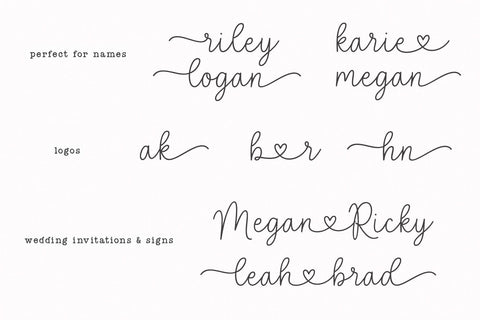 perfect for names
riley karie♡
logan megan
logos
ak b♡r hn
wedding invitations & signs
Megan♡Ricky
leah♡brad